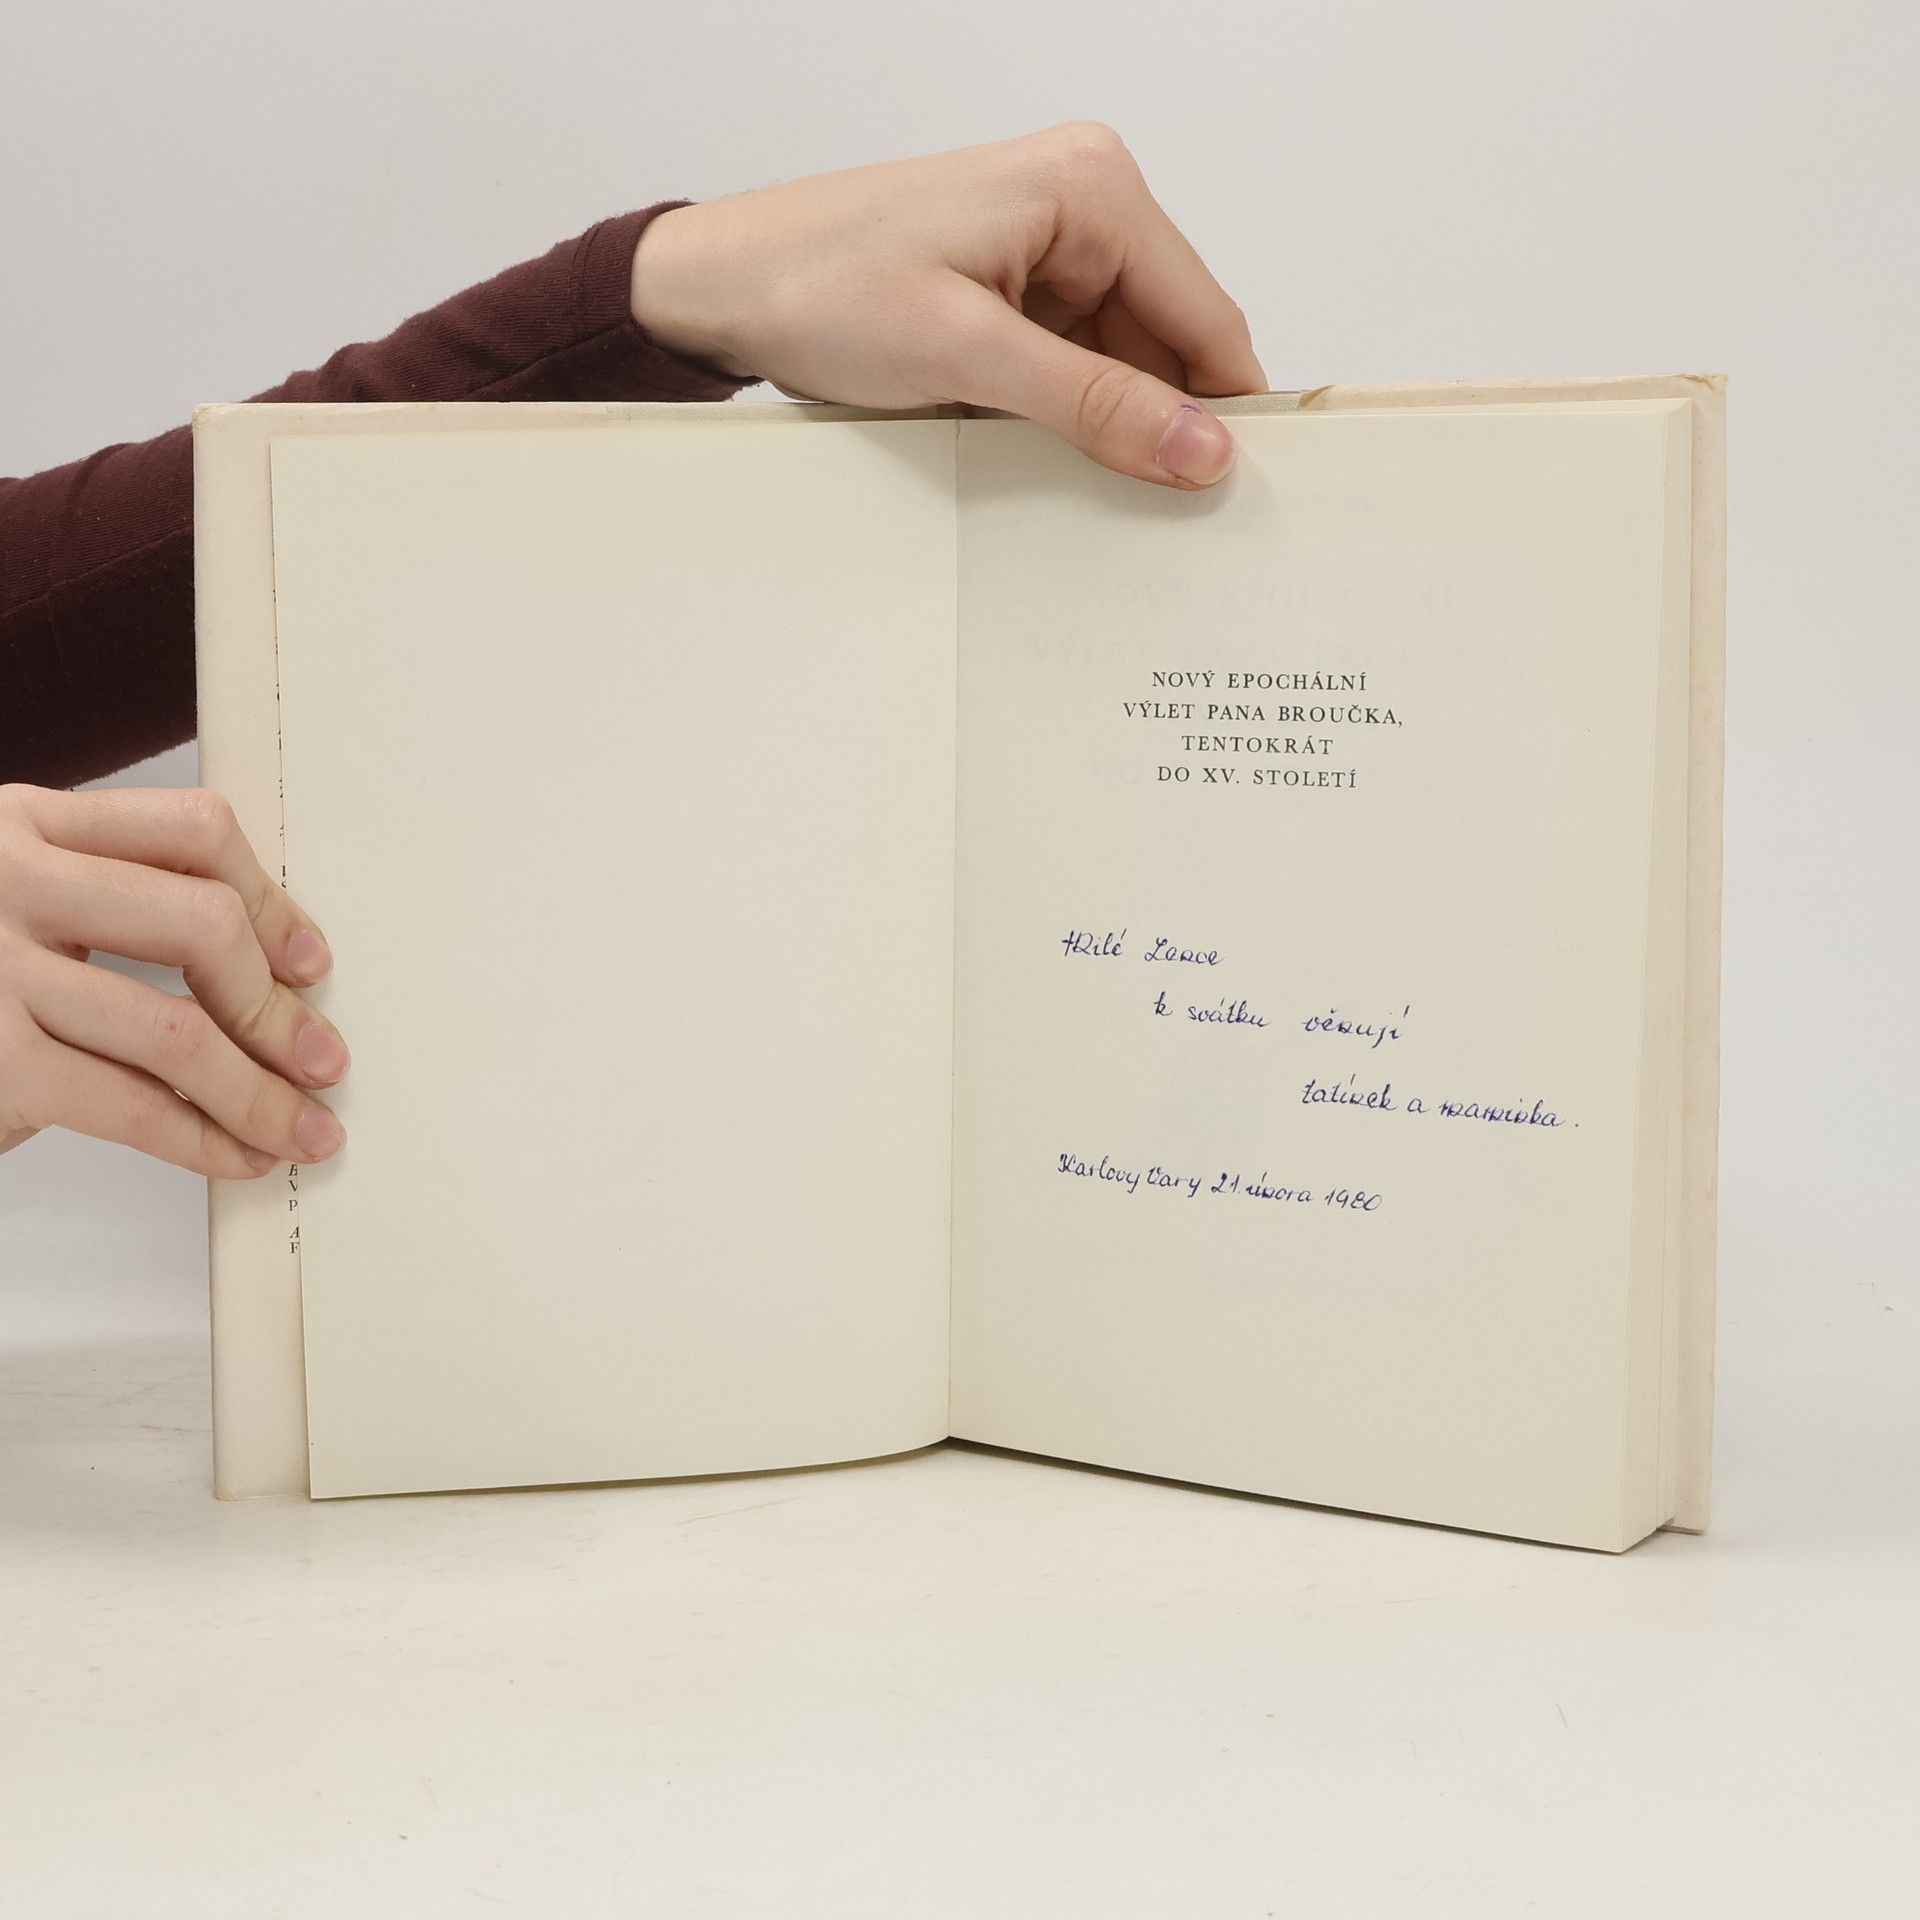 NOVÝ EPOCHÁLNÍ
VÝLET PANA BROUČKA,
TENTOKRÁT
DO XV. STOLETÍ
Milé Lence
k svátku věnují
tatínek a maminka.
Karlovy Vary 21. února 1980